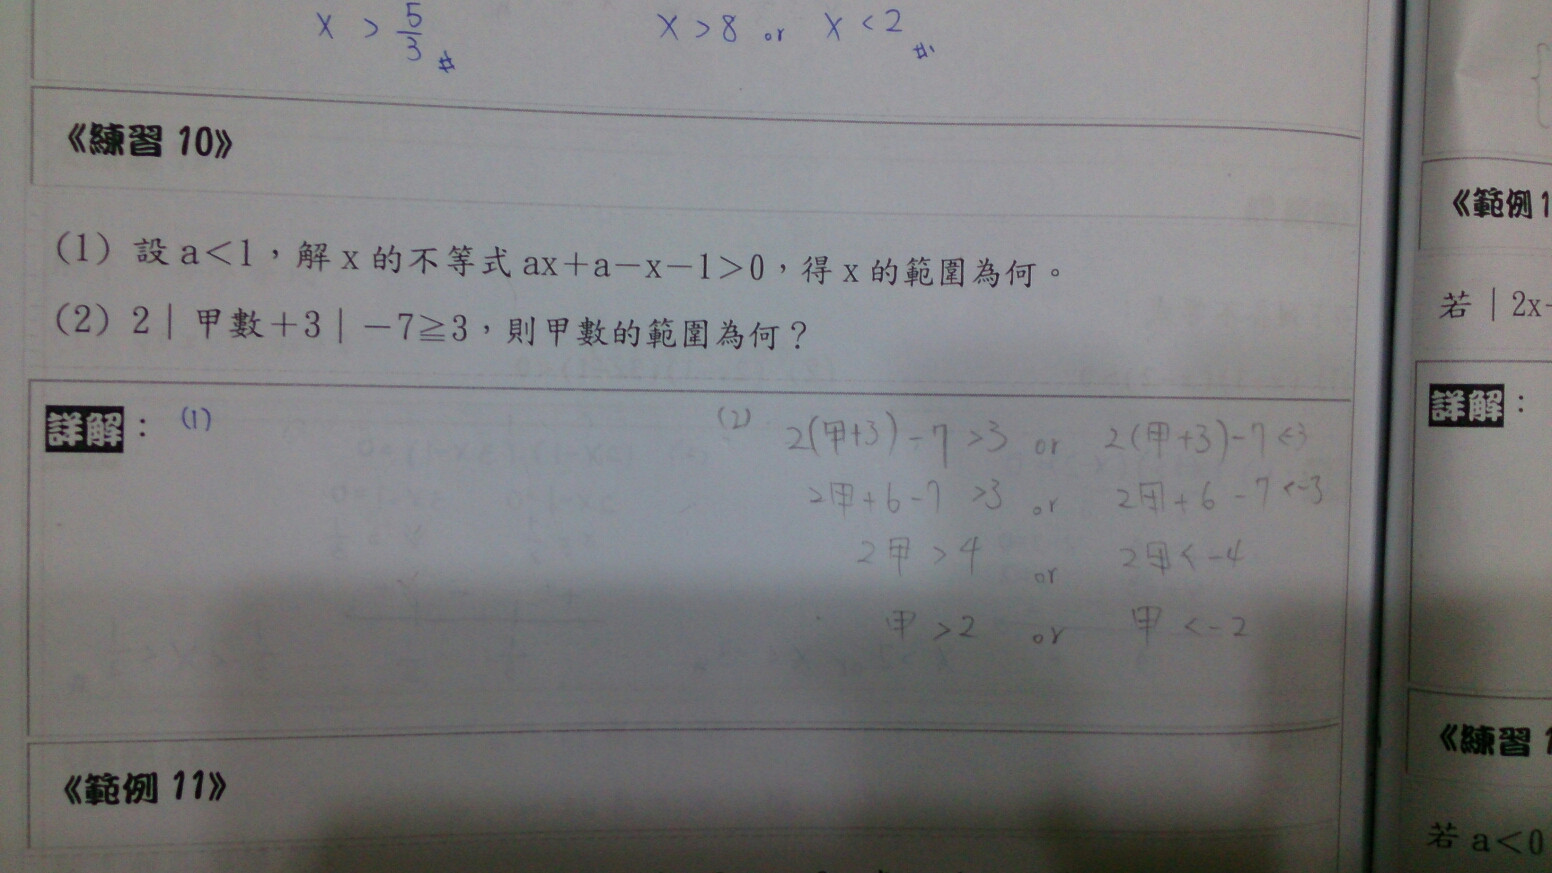 x > 5/3 # x > 8 or x < 2 #
《練習 10》
(1) 設 a<1，解 x 的不等式 ax+a-x-1>0，得 x 的範圍為何。
(2) 2｜甲數+3｜-7≧3，則甲數的範圍為何？
詳解： (1) (2) 2(甲+3)-7 >3 or 2(甲+3)-7 <-3
2甲+6-7 >3 or 2甲+6-7 <-3
2甲 > 4 or 2甲 < -4
甲 > 2 or 甲 < -2
《範例 11》
《範例 1
若｜2x-
詳解：
《練習 1
若 a<0